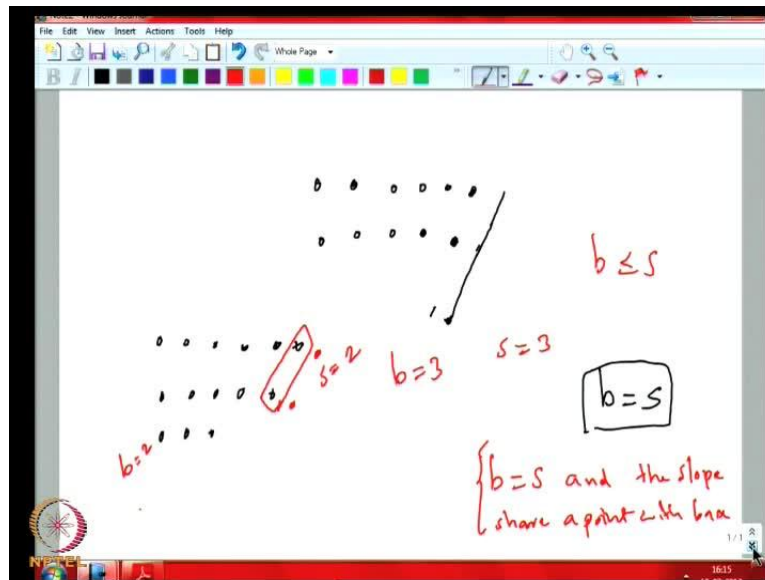 File Edit View Insert Actions Tools Help
Whole Page
B I
b ≤ s
s = 2
b = 3
s = 3
b = s
b = 2
b = s and the slope
share a point with base
1 / 1
NPTEL
16:15